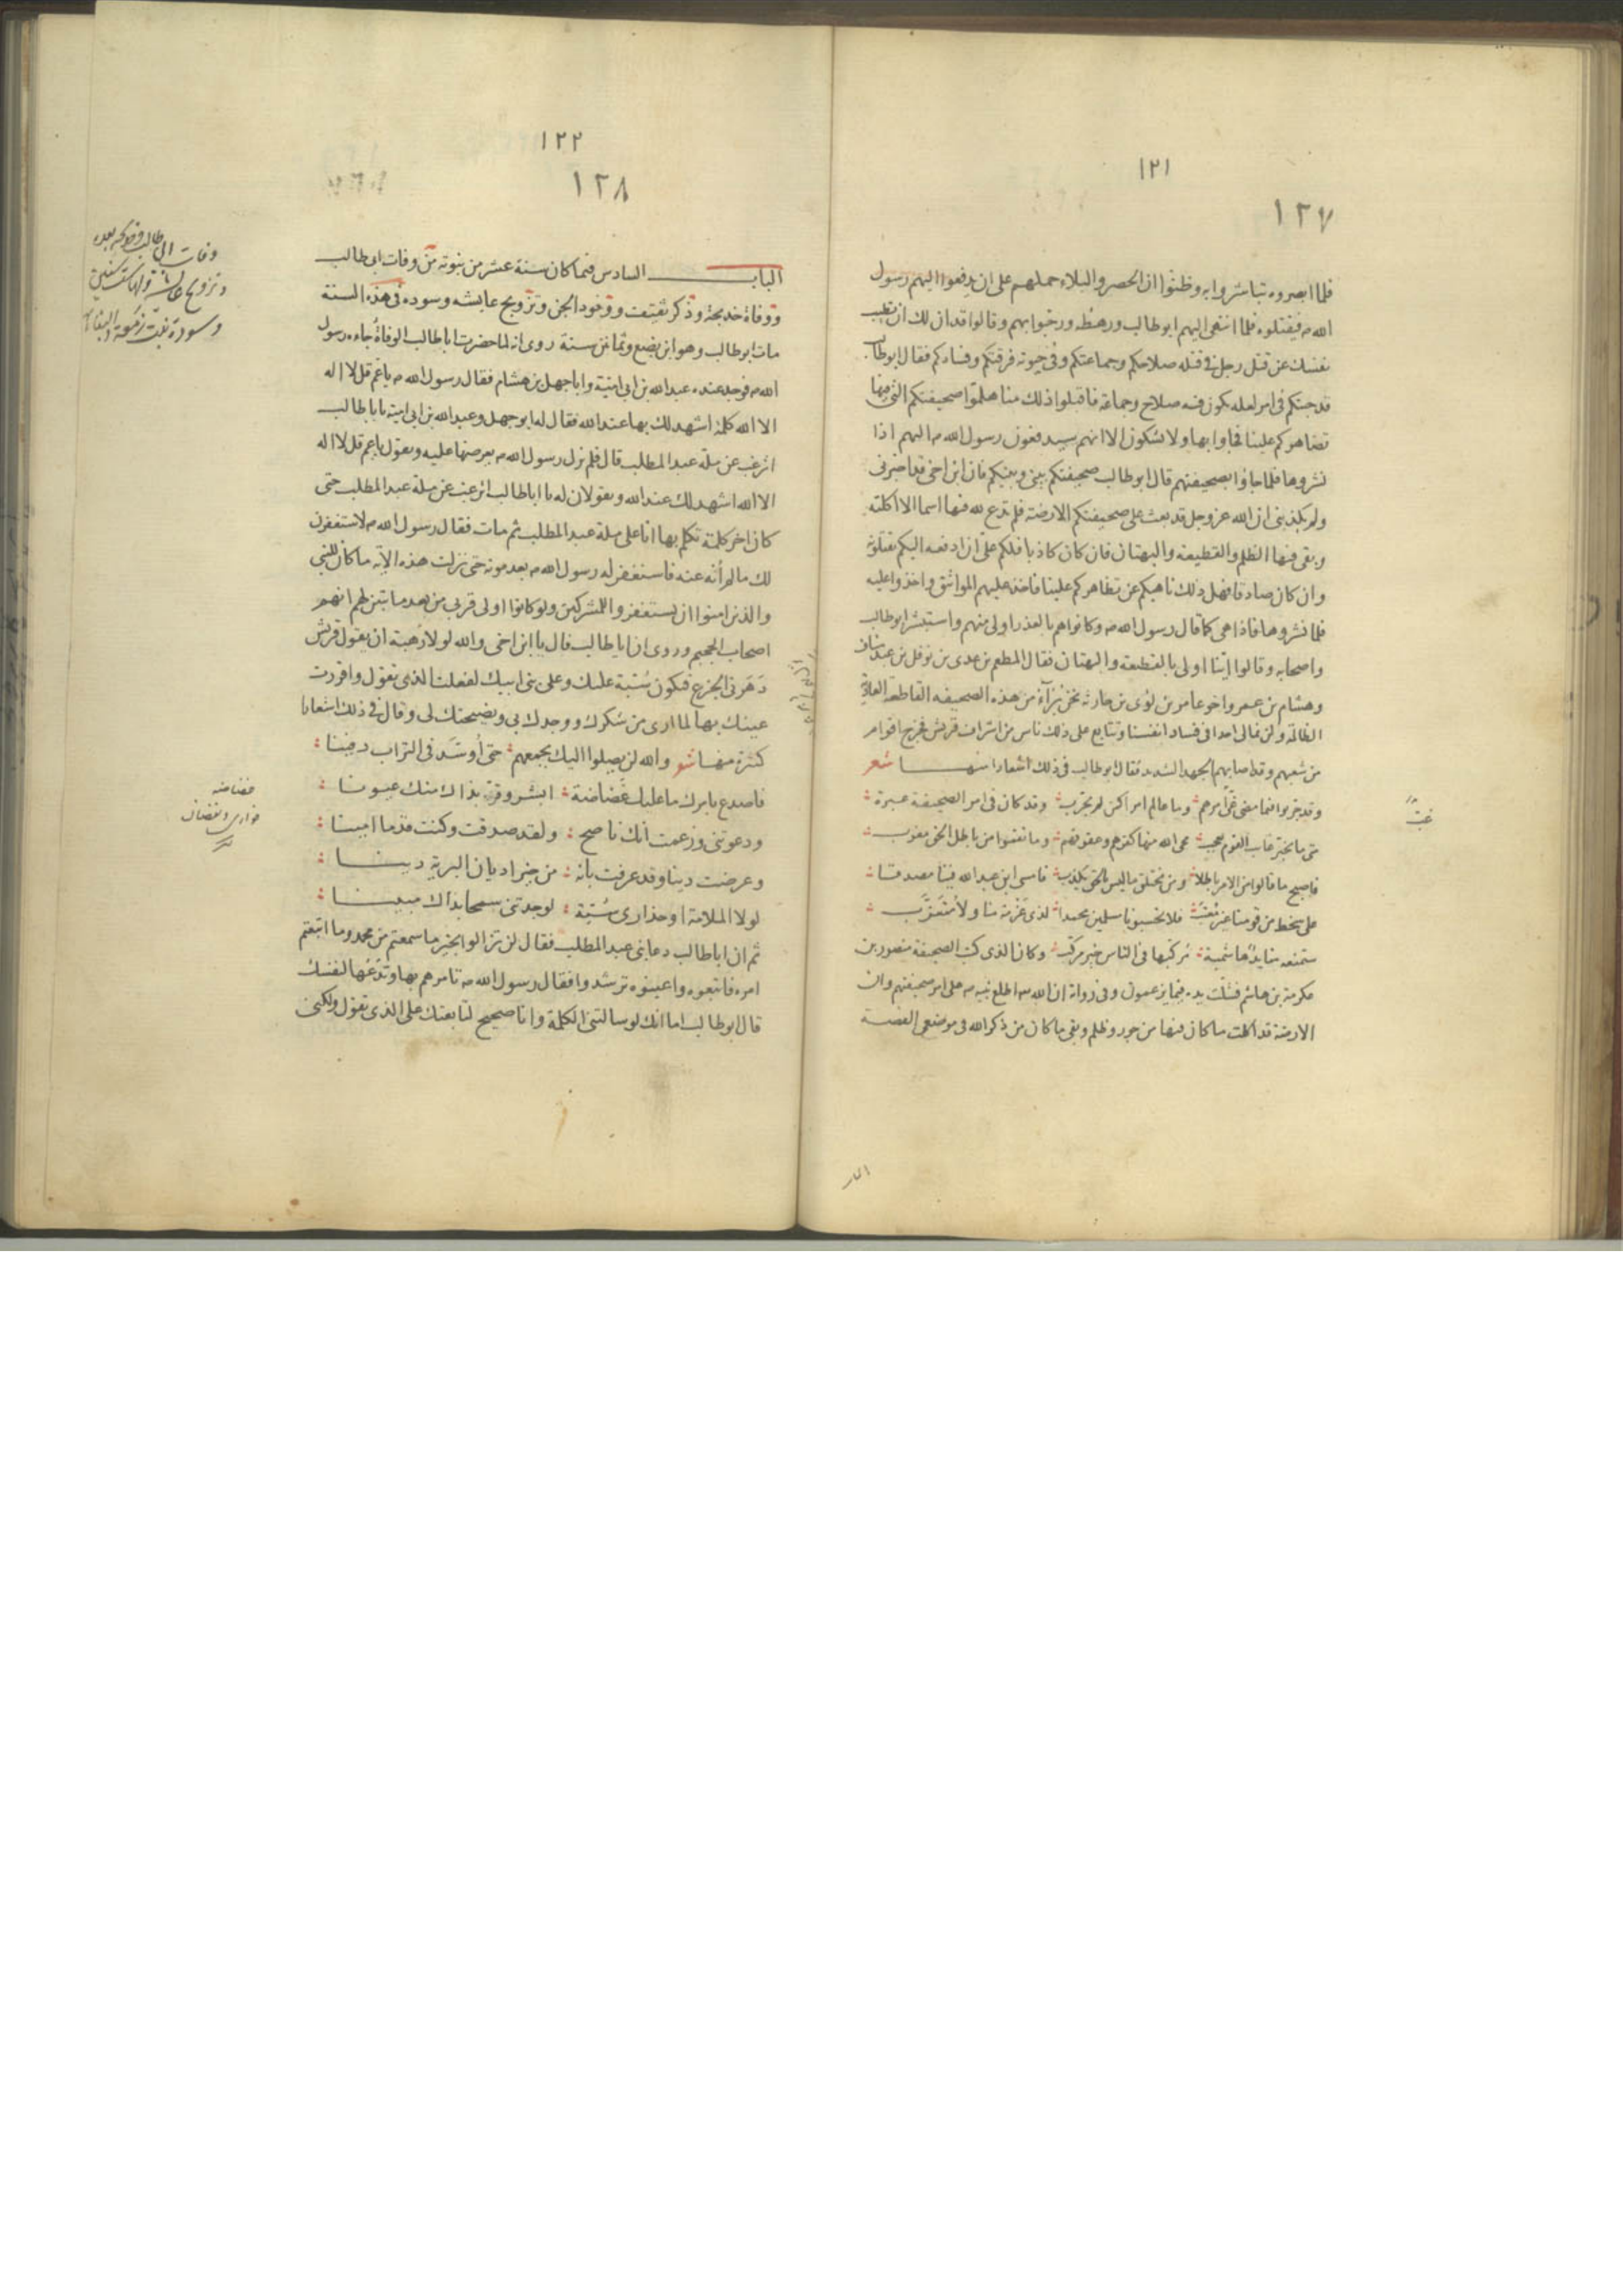 ١٢١
١٢٧
فلما ابصروه تباشروا به وظنوا ان الحصر والبلاء حملهم على ان يدفعوا اليهم رسول
الله م فيقتلوه فلما انتهى اليهم ابو طالب ورهطه ورحبوا بهم وقالوا قد ان لك ان تطيب
نفسك عن قتل رجل في قتله صلاحكم وجماعتكم وفي حيوته فرقتكم وفسادكم فقال ابو طالب
قد جئتكم في امر لعله يكون فيه صلاح وجماعة فاقبلوا ذلك منا هلموا صحيفتكم التي فيها
تضاهركم علينا فجاوا بها ولا يشكون الا انهم سيدفعون رسول الله م اليهم اذا
نشروها فلما جاؤا بصحيفتهم قال ابو طالب صحيفتكم بيني وبينكم فان ابن اخي قد اخبرني
ولم يكذبني ان الله عز وجل قد بعث على صحيفتكم الارضة فلم تدع لله فيها اسما الا اكلته
وبقي فيها الظلم والقطيعة والبهتان فان كان كاذبا فلكم علي ان ادفعه اليكم تقتلونه
وان كان صادقا فهل ذلك ناهيكم عن تظاهركم علينا فاخذ عليهم المواثق واخذوا عليه
فلما نشروها فاذا هي كما قال رسول الله م وكانوا هم بالغدر اولى منهم واستبشر ابو طالب
واصحابه وقالوا اينا اولى بالقطيعة والبهتان فقال المطعم بن عدي بن نوفل بن عبد مناف
وهشام بن عمرو اخو عامر بن لؤي بن حارثه نحن برآء من هذه الصحيفه القاطعة العادية
الظالمة ولن نمالي احدا في فساد انفسنا وتتابع على ذلك ناس من اشراف قريش فخرج اقوام
من شعبهم وقد اصابهم الجهد الشديد فقال ابو طالب في ذلك اشعارا منها شعر
وقد جربوا فيما مضى غب امرهم وما عالم امرا كمن لم يجرب وقد كان في امر الصحيفة عبرة
متى ما تخبر غايب القوم يعجب محى الله منها كفرهم وعقوقهم وما نقموا من باطل الحق مغرب
فاصبح ما قالوا من الامر باطلا ومن يختلق ما ليس بالحق يكذب فامسى ابن عبد الله فينا مصدقا
على سخط من قومنا غير معتب فلا تحسبونا مسلمين محمدا لذي غربة منا ولا متغرب
ستمنعه منا يد هاشمية مركبها في الناس خير مركب وكان الذي كتب الصحيفة منصور بن
عكرمة بن هاشم فشلت يده فيما يزعمون وفي رواية ان الله اطلع نبيه م على امر صحيفتهم وان
الارضة قد اكلت ما كان فيها من جور وظلم وبقي ما كان من ذكر الله في موضعي القصة
١٢٢
١٢٨
الباب السادس فيما كان سنة عشر من نبوته من وفات ابي طالب
ووفاة خديجة وذكر ثقيف ووفود الجن وتزويج عايشه وسوده في هذه السنة
مات ابو طالب وهو ابن بضع وثمانين سنة روى انه لما حضرت ابا طالب الوفاة جاءه رسول
الله م فوجد عنده عبد الله بن ابي امية وابا جهل بن هشام فقال رسول الله م يا عم قل لا اله
الا الله كلمة اشهد لك بها عند الله فقال له ابو جهل وعبد الله بن ابي امية يا با طالب
اترغب عن ملة عبد المطلب قال فلم يزل رسول الله م يعرضها عليه ويقول يا عم قل لا اله
الا الله اشهد لك عند الله ويقولان له يا ابا طالب اترغب عن ملة عبد المطلب حتى
كان اخر كلمة تكلم بها انا على ملة عبد المطلب ثم مات فقال رسول الله م لاستغفرن
لك ما لم أنه عنه فاستغفر له رسول الله م بعد موته حتى نزلت هذه الآية ما كان للنبي
والذين امنوا ان يستغفروا للمشركين ولو كانوا اولى قربى من بعد ما تبين لهم انهم
اصحاب الجحيم وروى ان ابا طالب قال يا ابن اخي والله لولا رهبة ان يقول قريش
دهرني الجزع فيكون سبة عليك وعلى بني ابيك لفعلت الذي تقول واقررت
عينك بها لما ارى من شكرك ووجدك بي ونصيحتك لي وقال في ذلك اشعارا
كثيرة منها شعر والله لن يصلوا اليك بجمعهم حتى أوسد في التراب دفينا
فاصدع بامرك ما عليك غضاضة ابشر وقر بذاك منك عيونا
ودعوتني وزعمت انك ناصح ولقد صدقت وكنت قدما امينا
وعرضت دينا وقد عرفت بأنه من خير اديان البرية دينا
لولا الملامة او حذاري سبة لوجدتني سمحا بذاك مبينا
ثم ان ابا طالب دعا بني عبد المطلب فقال لن تزالوا بخير ما سمعتم من محمد وما اتبعتم
امره فاتبعوه واعينوه ترشدوا فقال رسول الله م تامرهم بها وتدعها لنفسك
قال ابو طالب اما انك لو سالتني الكلمة وانا صحيح لتابعتك على الذي تقول ولكني
وفات ابي طالب وخديجه بعده
وتزويج عائشة
وسودة بنت زمعة
غضاضه
خواري ونقصان